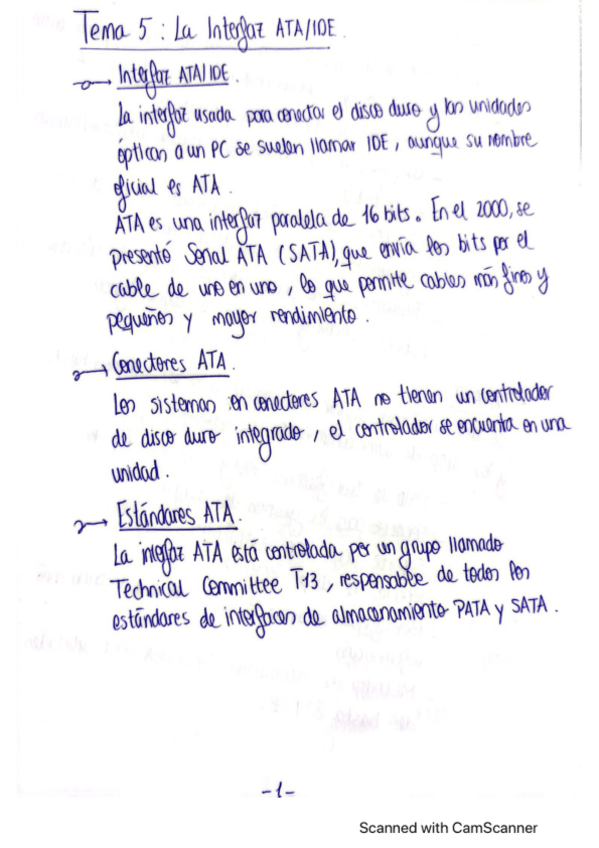 Tema 5: La Interfaz ATA/IDE.
Interfaz ATA/IDE.
La interfaz usada para conectar el disco duro y las unidades
ópticas a un PC se suelen llamar IDE, aunque su nombre
oficial es ATA.
ATA es una interfaz paralela de 16 bits. En el 2000, se
presentó Serial ATA (SATA), que envía los bits por el
cable de uno en uno, lo que permite cables más finos y
pequeños y mayor rendimiento.
Conectores ATA.
Los sistemas en conectores ATA no tienen un controlador
de disco duro integrado, el controlador se encuenta en una
unidad.
Estándares ATA.
La interfaz ATA está controlada por un grupo llamado
Technical Committee T13, responsable de todos los
estándares de interfaces de almacenamiento PATA y SATA.
-1-
Scanned with CamScanner